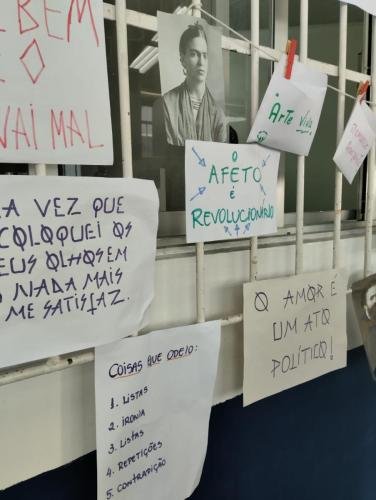 BEM
E O
VAI MAL
Arte Vida
O
AFETO
é
REVOLUCIONÁRIO
A VEZ QUE
COLOQUEI OS
EUS OLHOS EM
O NADA MAIS
ME SATISFAZ.
O AMOR É
UM ATO
POLÍTICO!
COISAS QUE ODEIO:
1. LISTAS
2. IRONIA
3. LISTAS
4. REPETIÇÕES
5. CONTRADIÇÃO